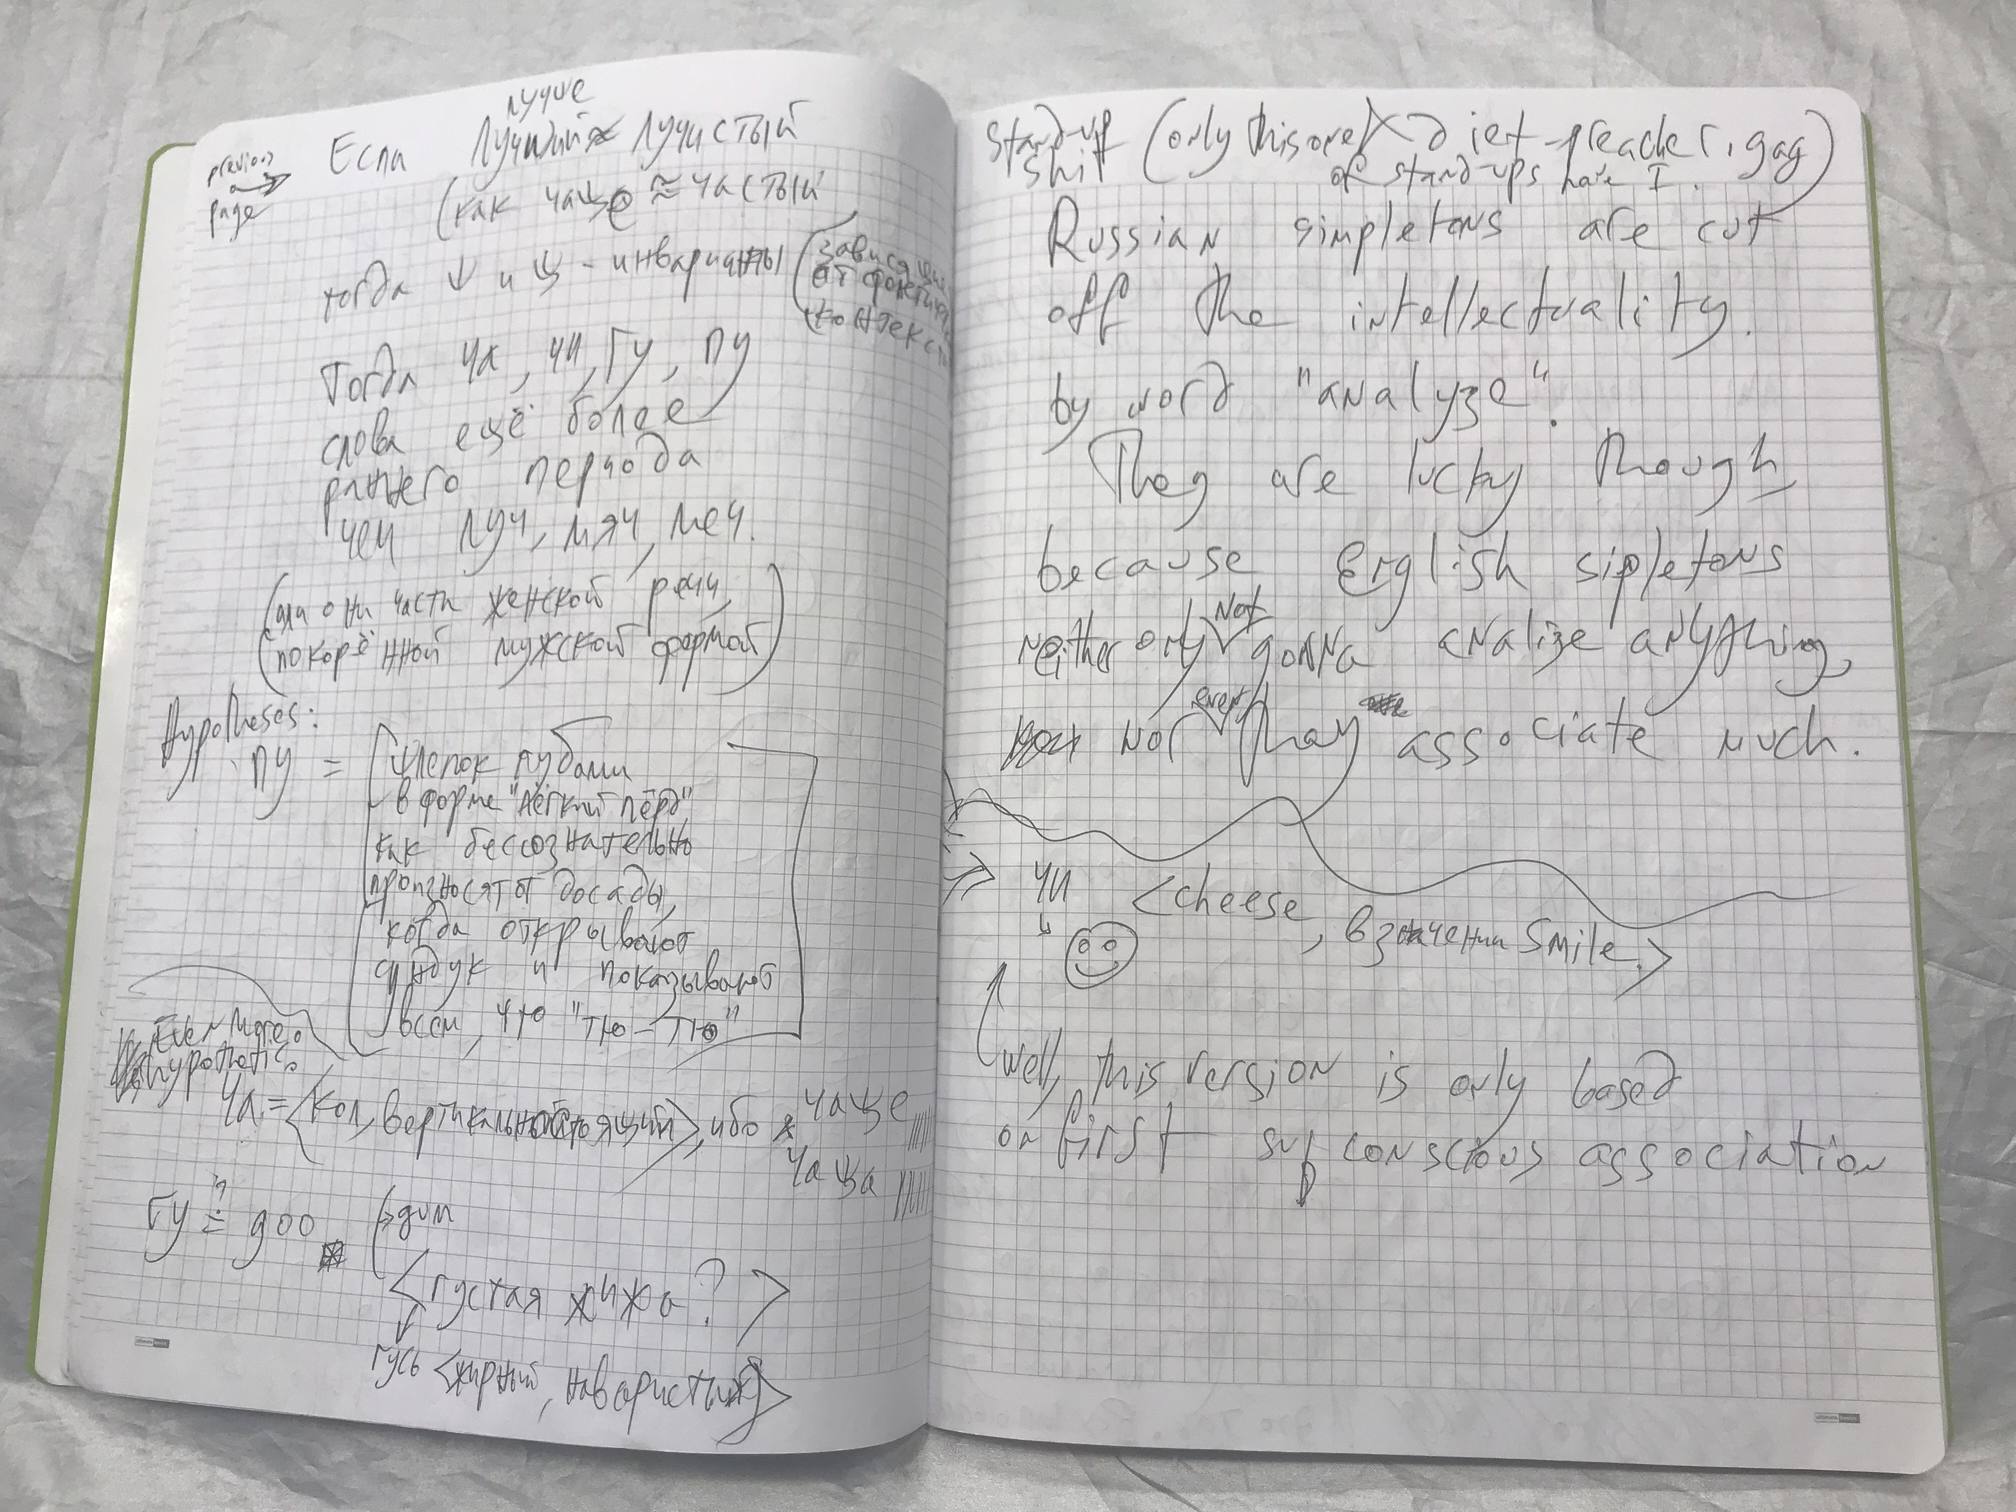 previous
page
лучше
Если Лучший ≈ Лучистый
(как чаще ≈ частый
тогда Ψ и щ - инварианты (зависящие
от фонетич
контекс
Тогда ча, чи, гу, пу
слова ещё более
раннего периода
чем луч, мяч, меч.
(или они части женской речи,
покорённой мужской формой)
Hypotheses:
пу = шлепок губами
в форме "лёгкий пёрд",
как бессознательно
произносят от досады,
когда открывают
сундук и показывают
всем, что "тю-тю"
Even more
hypothetic.
ча = <кол, вертикальный стоящий>, ибо чаще
чаща
гу ≟ goo (→gum
<густая жижа?>
гусь <жирный, наваристый>
stand-up (only this one diet-preacher, gag)
shit of stand-ups have I.
Russian simpletons are cut
off the intellectuality.
by word "analyze".
They are lucky though,
because English sipletons
neither only not gonna analize anything,
nor even they associate much.
чи <cheese, в значении smile.>
well, this version is only based
on first supconscious association